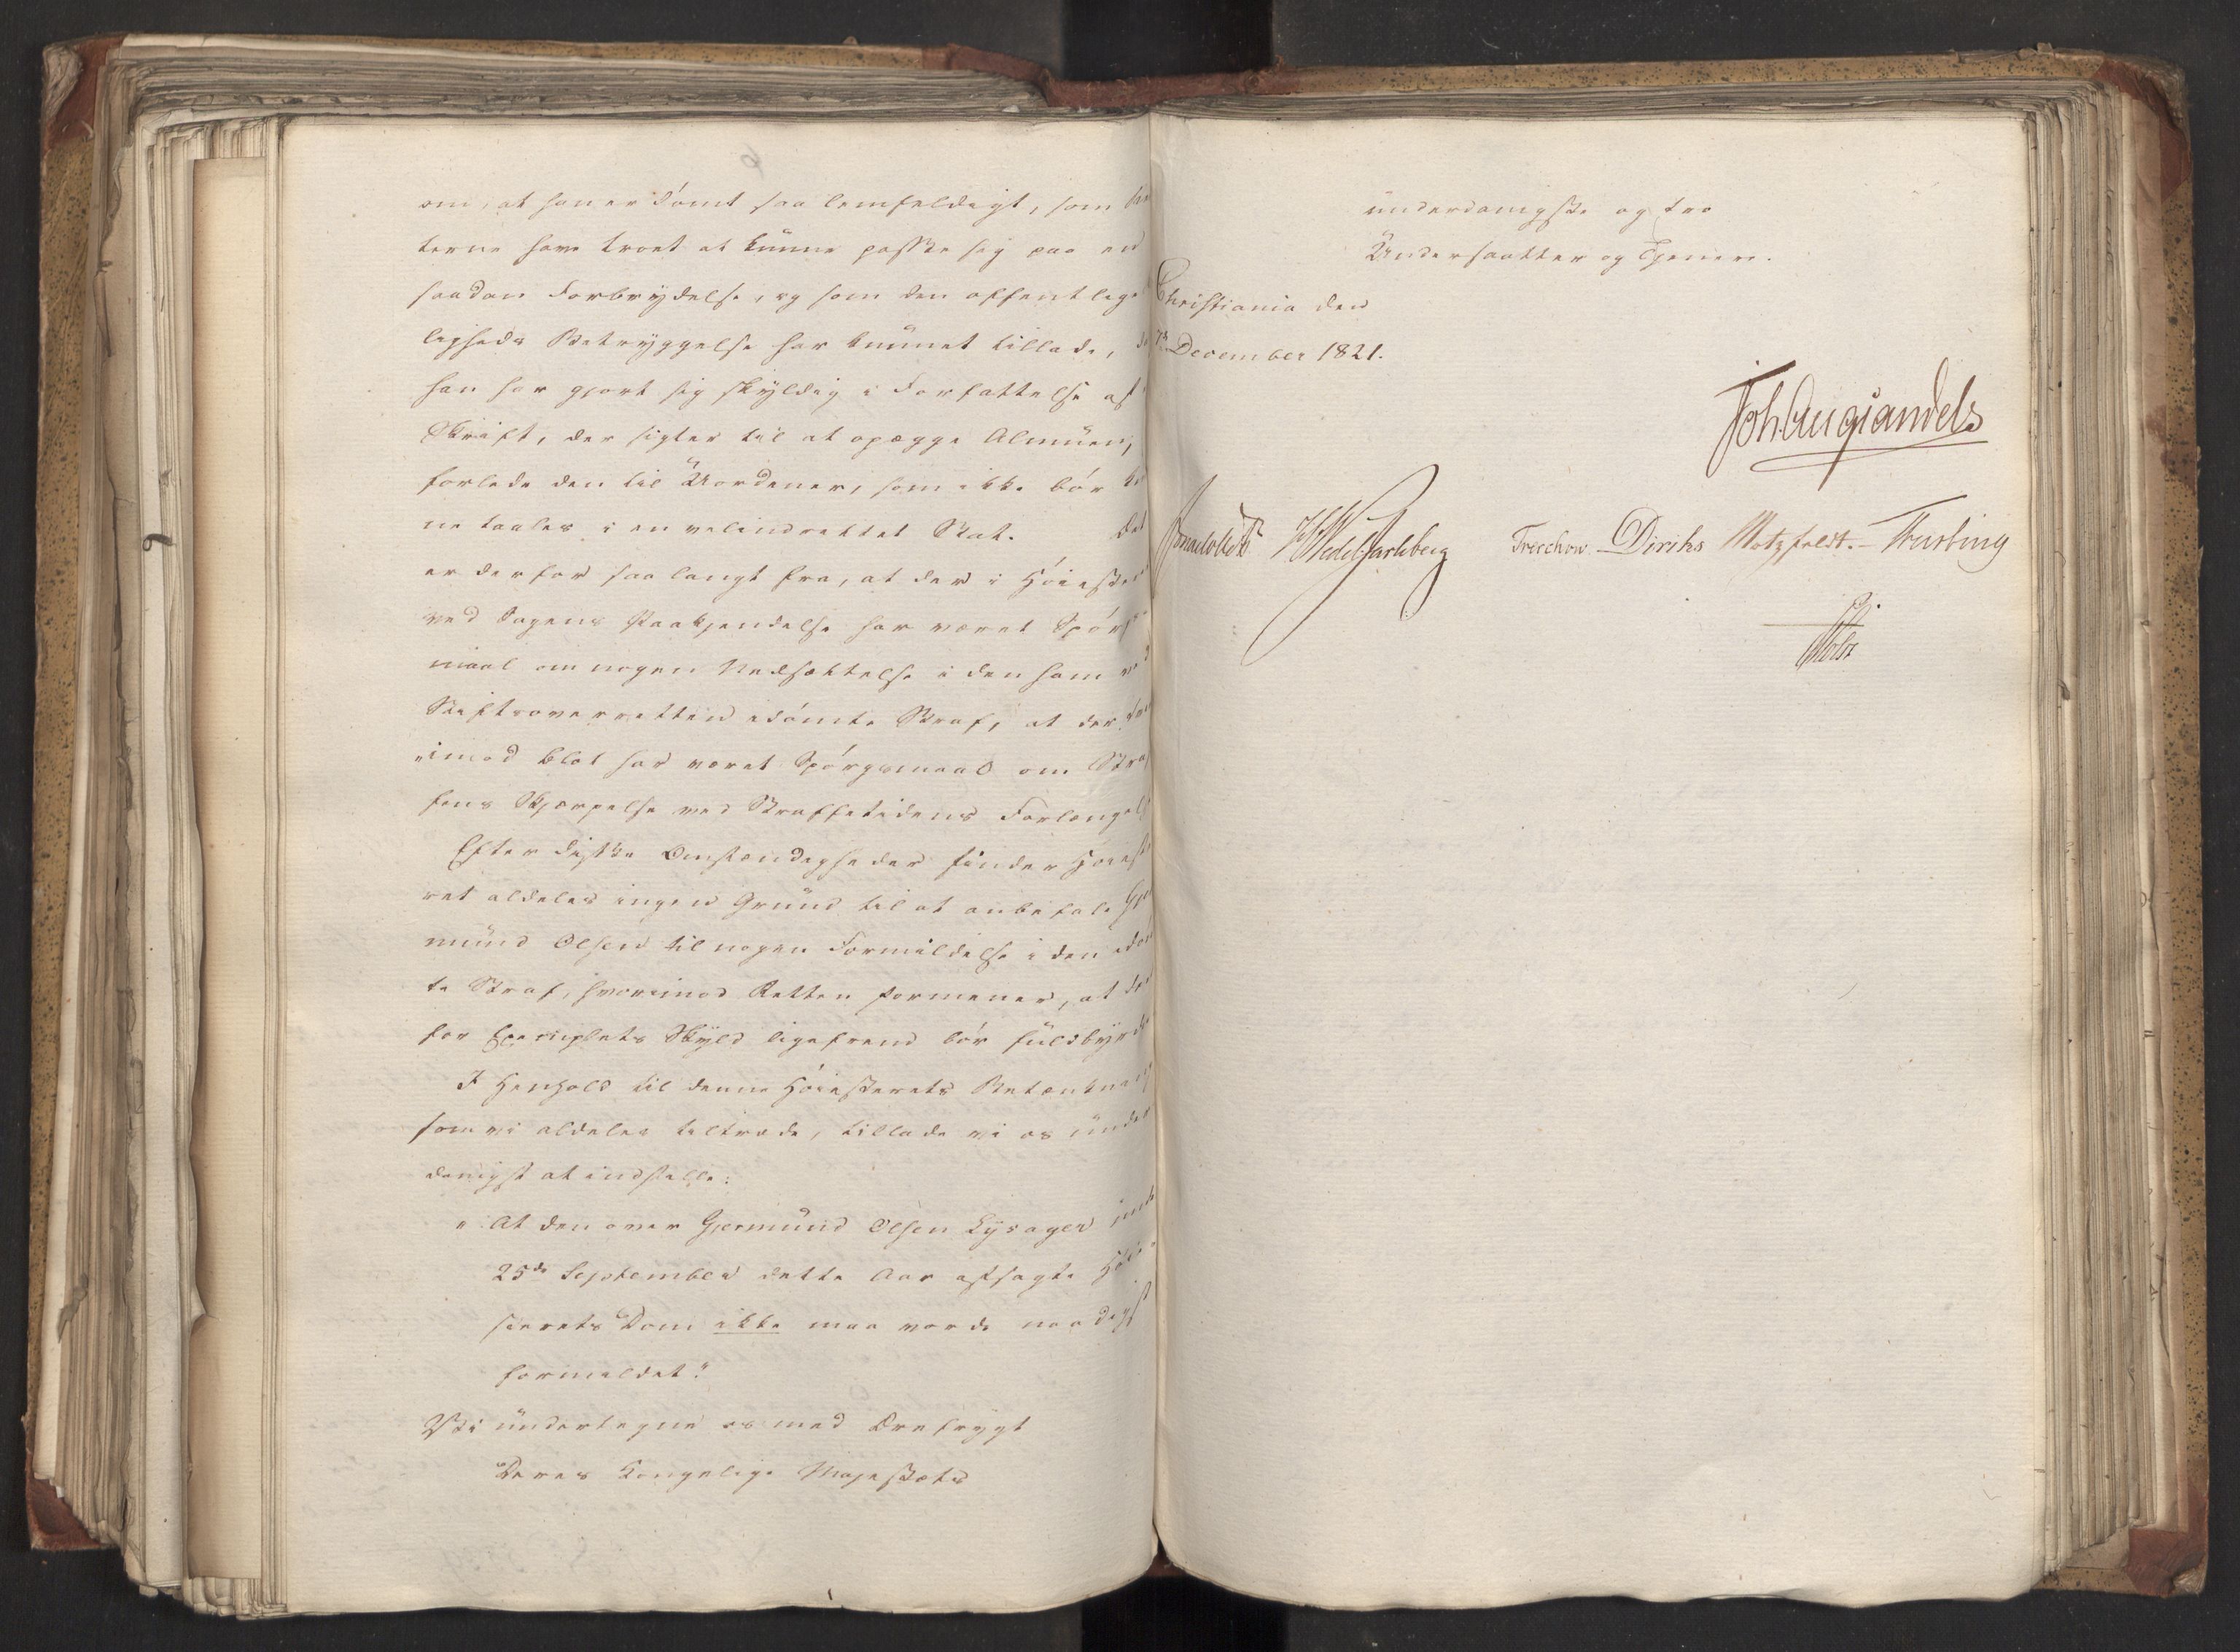 om, at han er dómt saa lemfeldigt, som
terne have troet at kunne passe sig paa en
saadan Forbrydelse, og som den offentlige
ligheds Betryggelse har kunnet tillade,
han har gjort sig skyldig i Forfattelse af
Skrift, der sigter til at opægge Almuen,
forlede den til Uordener, som ikke bór
ne taales i en velindrettet Stat. Det
er derfor saa langt fra, at der i Hóieste
ved Sagens Paakjendelse har været Spórs
maal om nogen Nedsættelse i den ham ved
Stiftsoverretten idómte Straf, at der
imod blot har været Spórgsmaal om Straf
fens Skjærpelse ved Straffetidens Forlængelse
Efter disse Omstændigheder finder Hóieste
ret aldeles ingen Grund til at anbefale Gjer
mund Olsen til nogen Formildelse i den idóm
te Straf, hvorimod Retten formener, at den
for Exemplets Skyld ligefrem bór fuldbyrdes
I Henhold til denne Hóiesterets Betænkning
som vi aldeles tiltræde, tillade vi os under
danigst at indstille:
"At den over Gjermund Olsen Lysager under
25de September dette Aar afsagte Hóie
sterets Dom ikke maa vorde naadigst
formildet."
Vi undertegne os med Ærefrygt
Deres Kongelige Majestæts
underdanigste og tro
Undersaatter og Tjenere.
Christiania den
December 1821.
Joh. Aug. Sandels
HWedel Jarlsberg Treschow Diriks Motzfeldt. Fasting
Holst